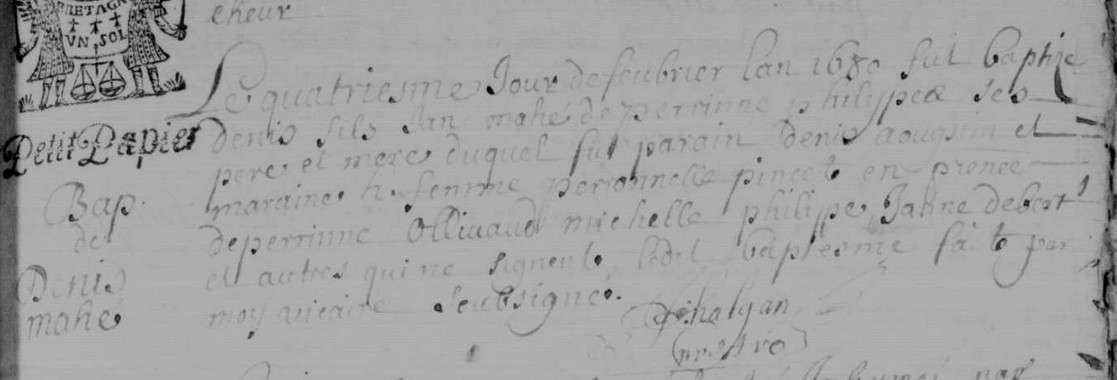 BRETAGN
VN SOL
Petit Papier
cheur
Le quatriesme Jour de feubrier lan 1680 fut baptise
denis fils Jan mahé de perrinne philippes ses
pere et mere duquel fut parain denis aougstin et
maraine h. femme perronnelle pincet en prence
de perrinne Ollivaud michelle philippe Janne debert
et autres qui ne signent ledit baptesme fait par
moy vicaire soubsigne.
Bap.
de
Denis
mahé